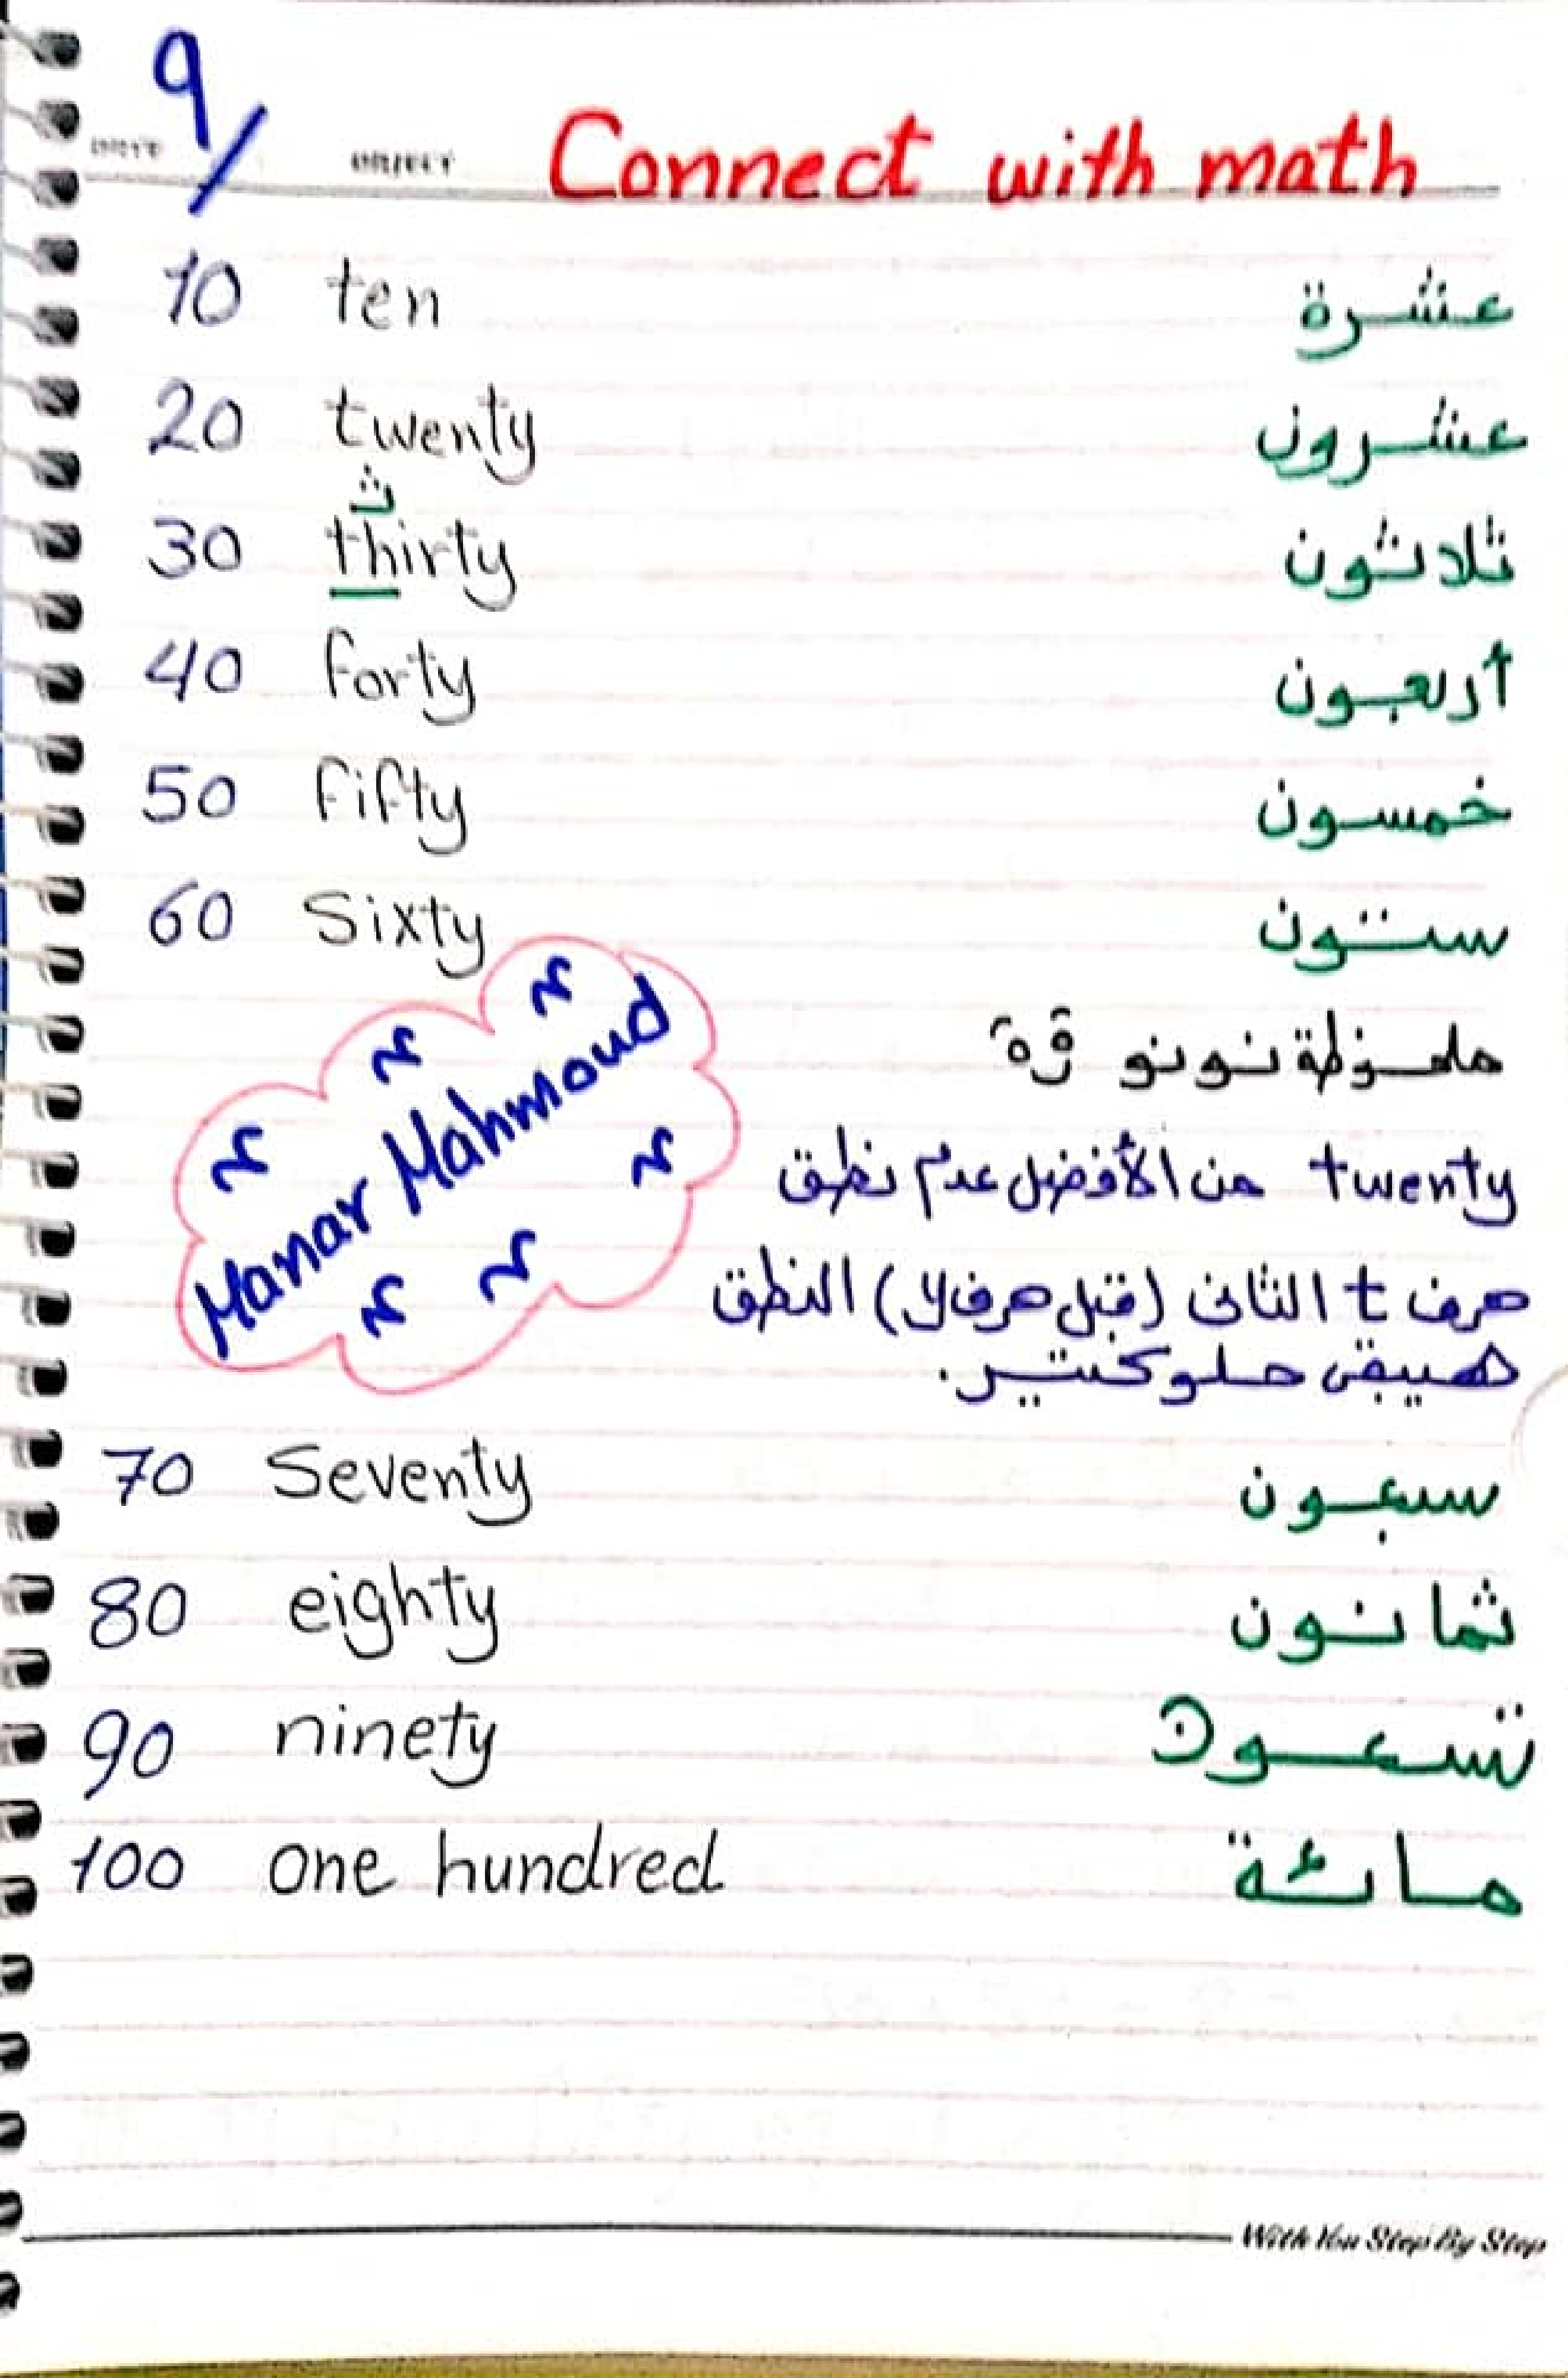 9/
OBJECT
Connect with math
10 ten عشرة
20 twenty عشرون
ث
30 thirty ثلاثون
40 forty أربعون
50 fifty خمسون
60 Sixty ستون
Manar Mahmoud
ملحوظة نونو قة
twenty من الأفضل عدم نطق
حرف t الثانى (قبل حرف y) النطق
هيبقى حلو كتير.
70 Seventy سبعون
80 eighty ثمانون
90 ninety تسعون
100 one hundred مائة
With You Step By Step